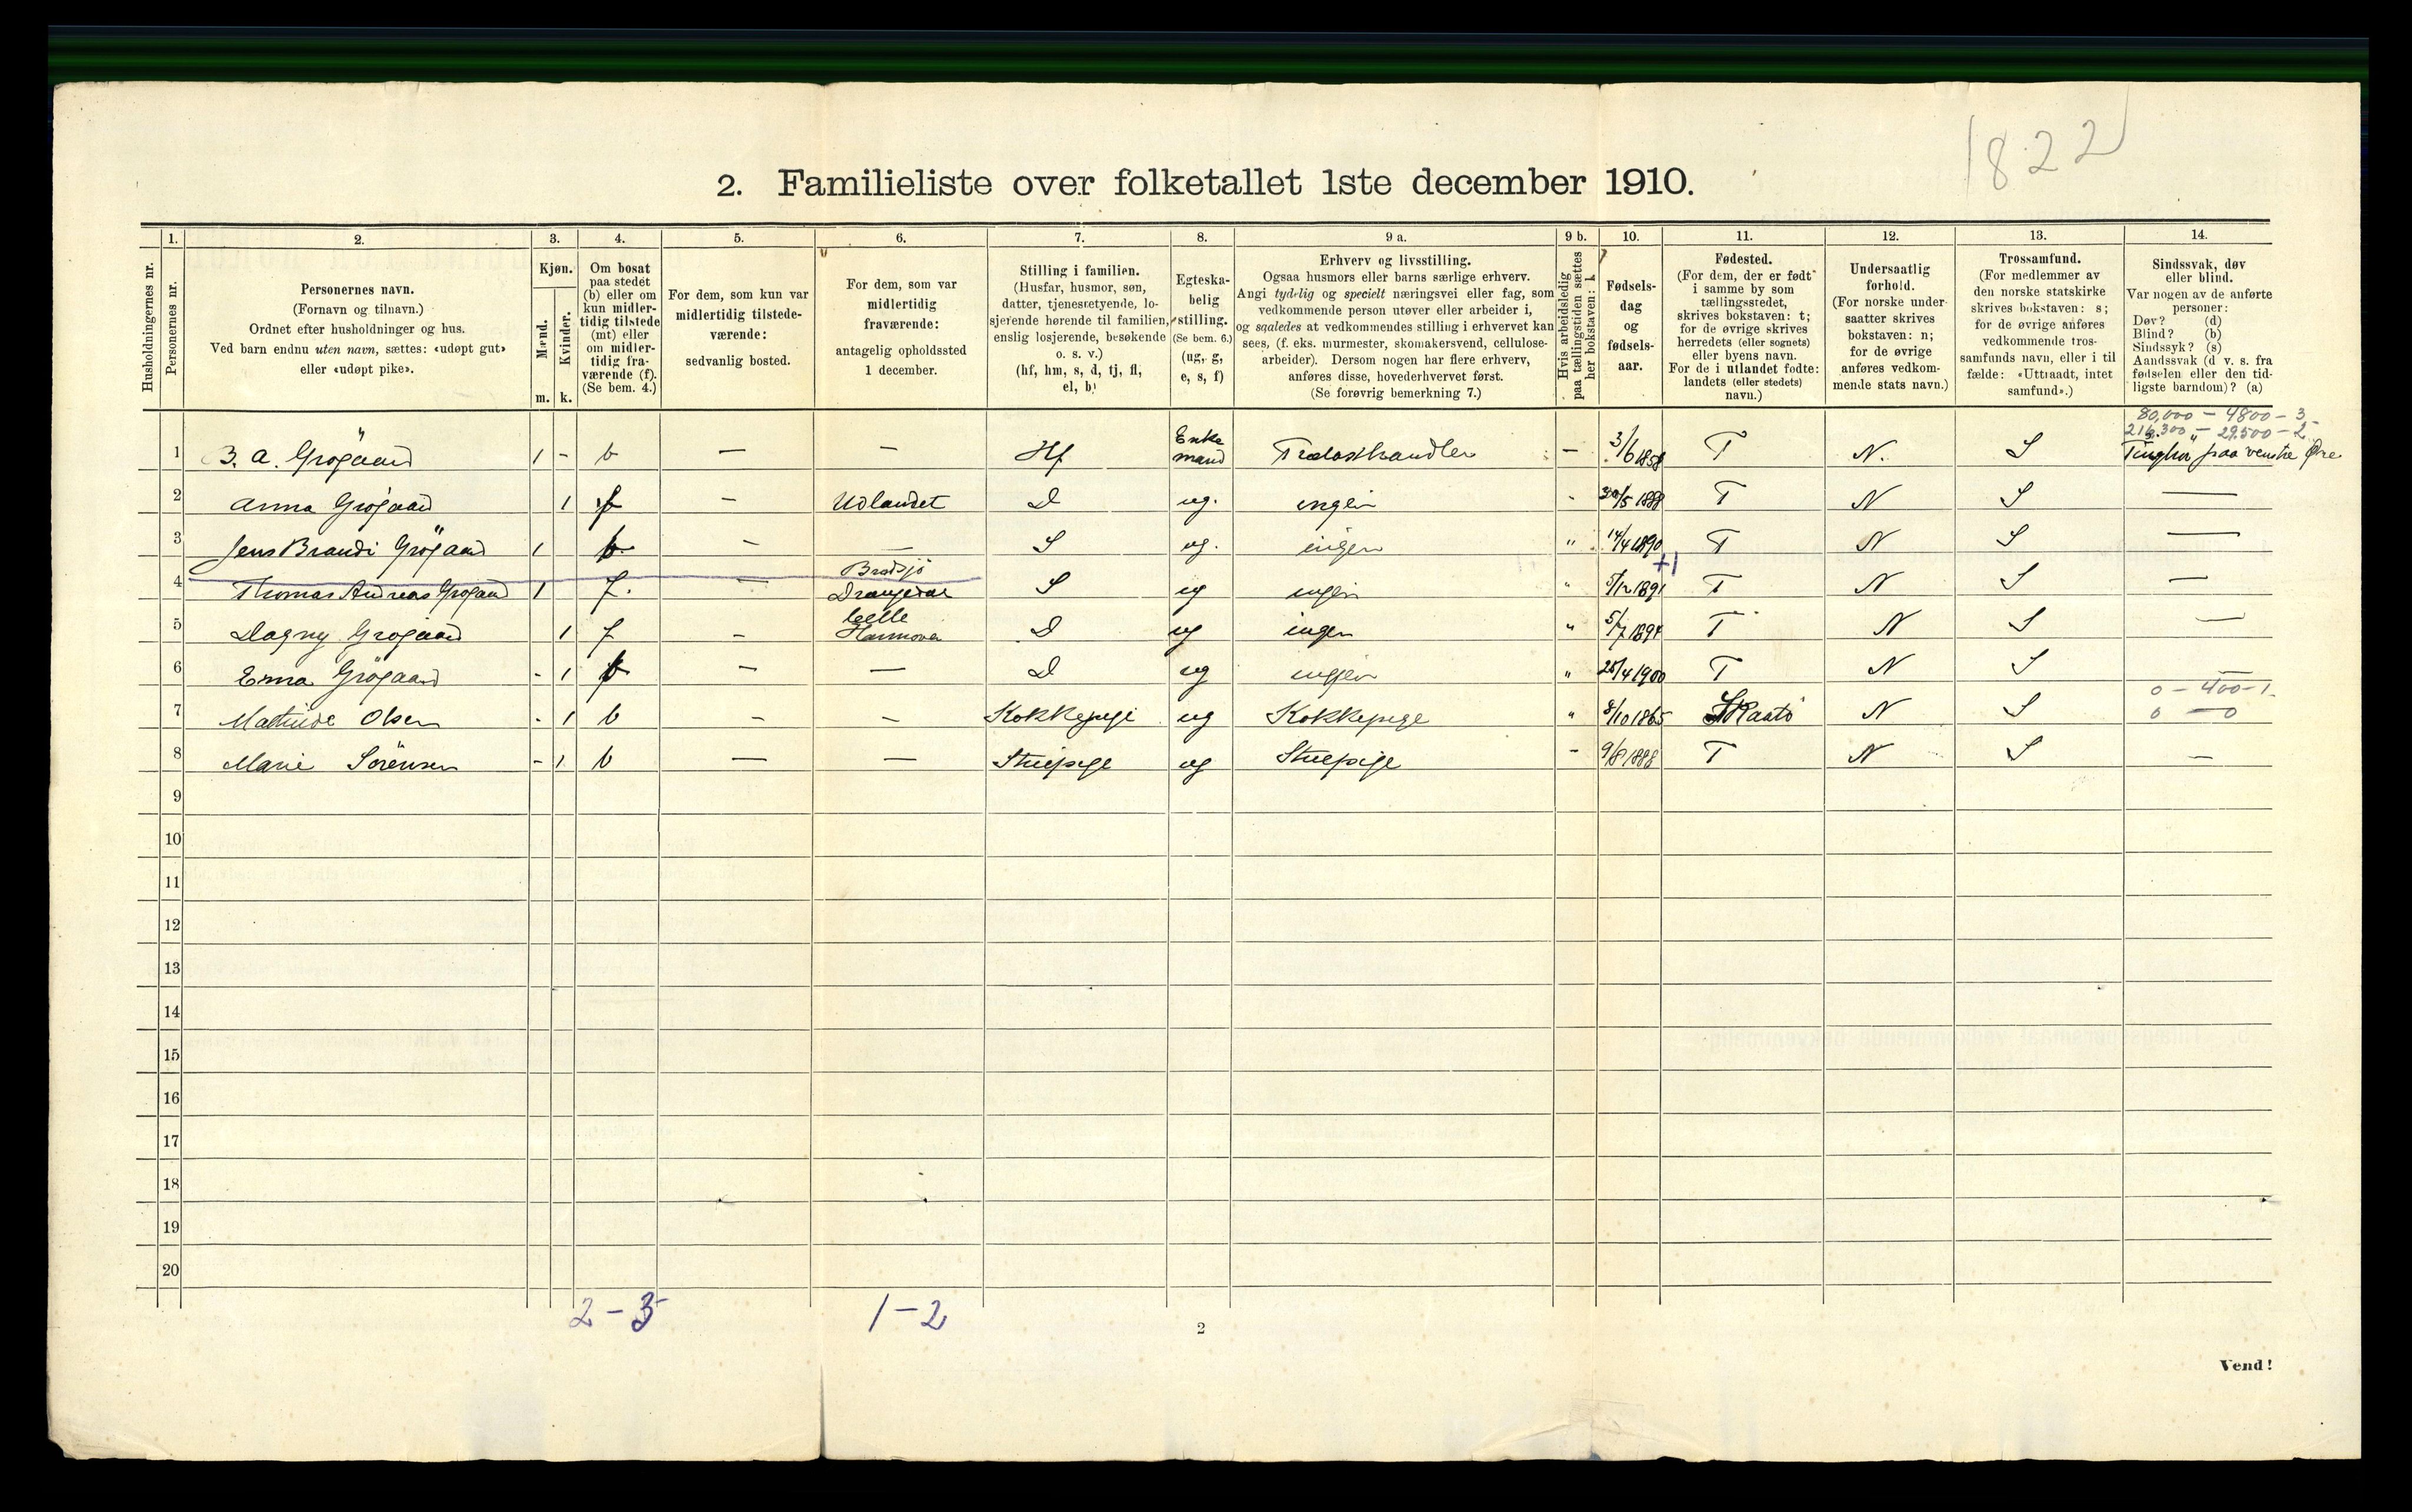 1822
2. Familieliste over folketallet 1ste december 1910.
Husholdningernes nr.
1.
Personernes nr.
2.
Personernes navn.
(Fornavn og tilnavn.)
Ordnet efter husholdninger og hus.
Ved barn endnu uten navn, sættes: «udøpt gut»
eller «udøpt pike».
3.
Kjøn.
Mænd.
Kvinder.
m. k.
4.
Om bosat
paa stedet
(b) eller om
kun midler-
tidig tilstede
(mt) eller
om midler-
tidig fra-
værende (f).
(Se bem. 4.)
5.
For dem, som kun var
midlertidig tilstede-
værende:
sedvanlig bosted.
6.
For dem, som var
midlertidig
fraværende:
antagelig opholdssted
1 december.
7.
Stilling i familien.
(Husfar, husmor, søn,
datter, tjenestetyende, lo-
sjerende hørende til familien,
enslig losjerende, besøkende
o. s. v.)
(hf, hm, s, d, tj, fl,
el, b)
8.
Egteska-
belig
stilling.
(Se bem. 6.)
(ug, g,
e, s, f)
9 a.
Erhverv og livsstilling.
Ogsaa husmors eller barns særlige erhverv.
Angi tydelig og specielt næringsvei eller fag, som
vedkommende person utøver eller arbeider i,
og saaledes at vedkommendes stilling i erhvervet kan
sees, (f. eks. murmester, skomakersvend, cellulose-
arbeider). Dersom nogen har flere erhverv,
anføres disse, hovederhvervet først.
(Se forøvrig bemerkning 7.)
9 b.
Hvis arbeidsledig
paa tællingstiden sættes
her bokstaven: l.
10.
Fødsels-
dag
og
fødsels-
aar.
11.
Fødested.
(For dem, der er født
i samme by som
tællingsstedet,
skrives bokstaven: t;
for de øvrige skrives
herredets (eller sognets)
eller byens navn.
For de i utlandet fødte:
landets (eller stedets)
navn.)
12.
Undersaatlig
forhold.
(For norske under-
saatter skrives
bokstaven: n;
for de øvrige
anføres vedkom-
mende stats navn.)
13.
Trossamfund.
(For medlemmer av
den norske statskirke
skrives bokstaven: s;
for de øvrige anføres
vedkommende tros-
samfunds navn, eller i til
fælde: «Uttraadt, intet
samfund».)
14.
Sindssvak, døv
eller blind.
Var nogen av de anførte
personer:
Døv? (d)
Blind? (b)
Sindssyk? (s)
Aandssvak (d. v. s. fra
fødselen eller den tid-
ligste barndom)? (a)
80,000 – 4800 – 3
216.300 – 29.500 – 2
1 B. A. Grögaard 1 - b — — Hf Enke mand Trælasthandler — 3/6 1858 T N. S Tunghør paa venstre Øre
2 Anna Grøgaard 1 f - Udlandet D ug. ingen - 30/5 1888 T N S —
3 Jens Brandi Grögaard 1 b - — S ug. ingen " 14/4 1890 T N S —
+1
4 Thomas Andreas Grøgaard 1 f. - Bradsjö Drangedal S ug ingen " 5/12 1891 T N S —
5 Dagny Grøgaard 1 f - Celle Hannover D ug ingen " 5/7 1894 T N S —
6 Erna Grögaard - 1 b - — D ug ingen " 25/4 1900 T N S —
0 – 400 – 1.
7 Mathilde Olsen - 1 b - - Kokkepige ug Kokkepige " 8/10 1865 Skaatö N S 0 – 0
8 Marie Sörensen - 1 b — — Stuepige ug Stuepige - 9/8 1888 T N S —
9
10
11
12
13
14
15
16
17
18
19
20
2 – 3 1 – 2
2
Vend!